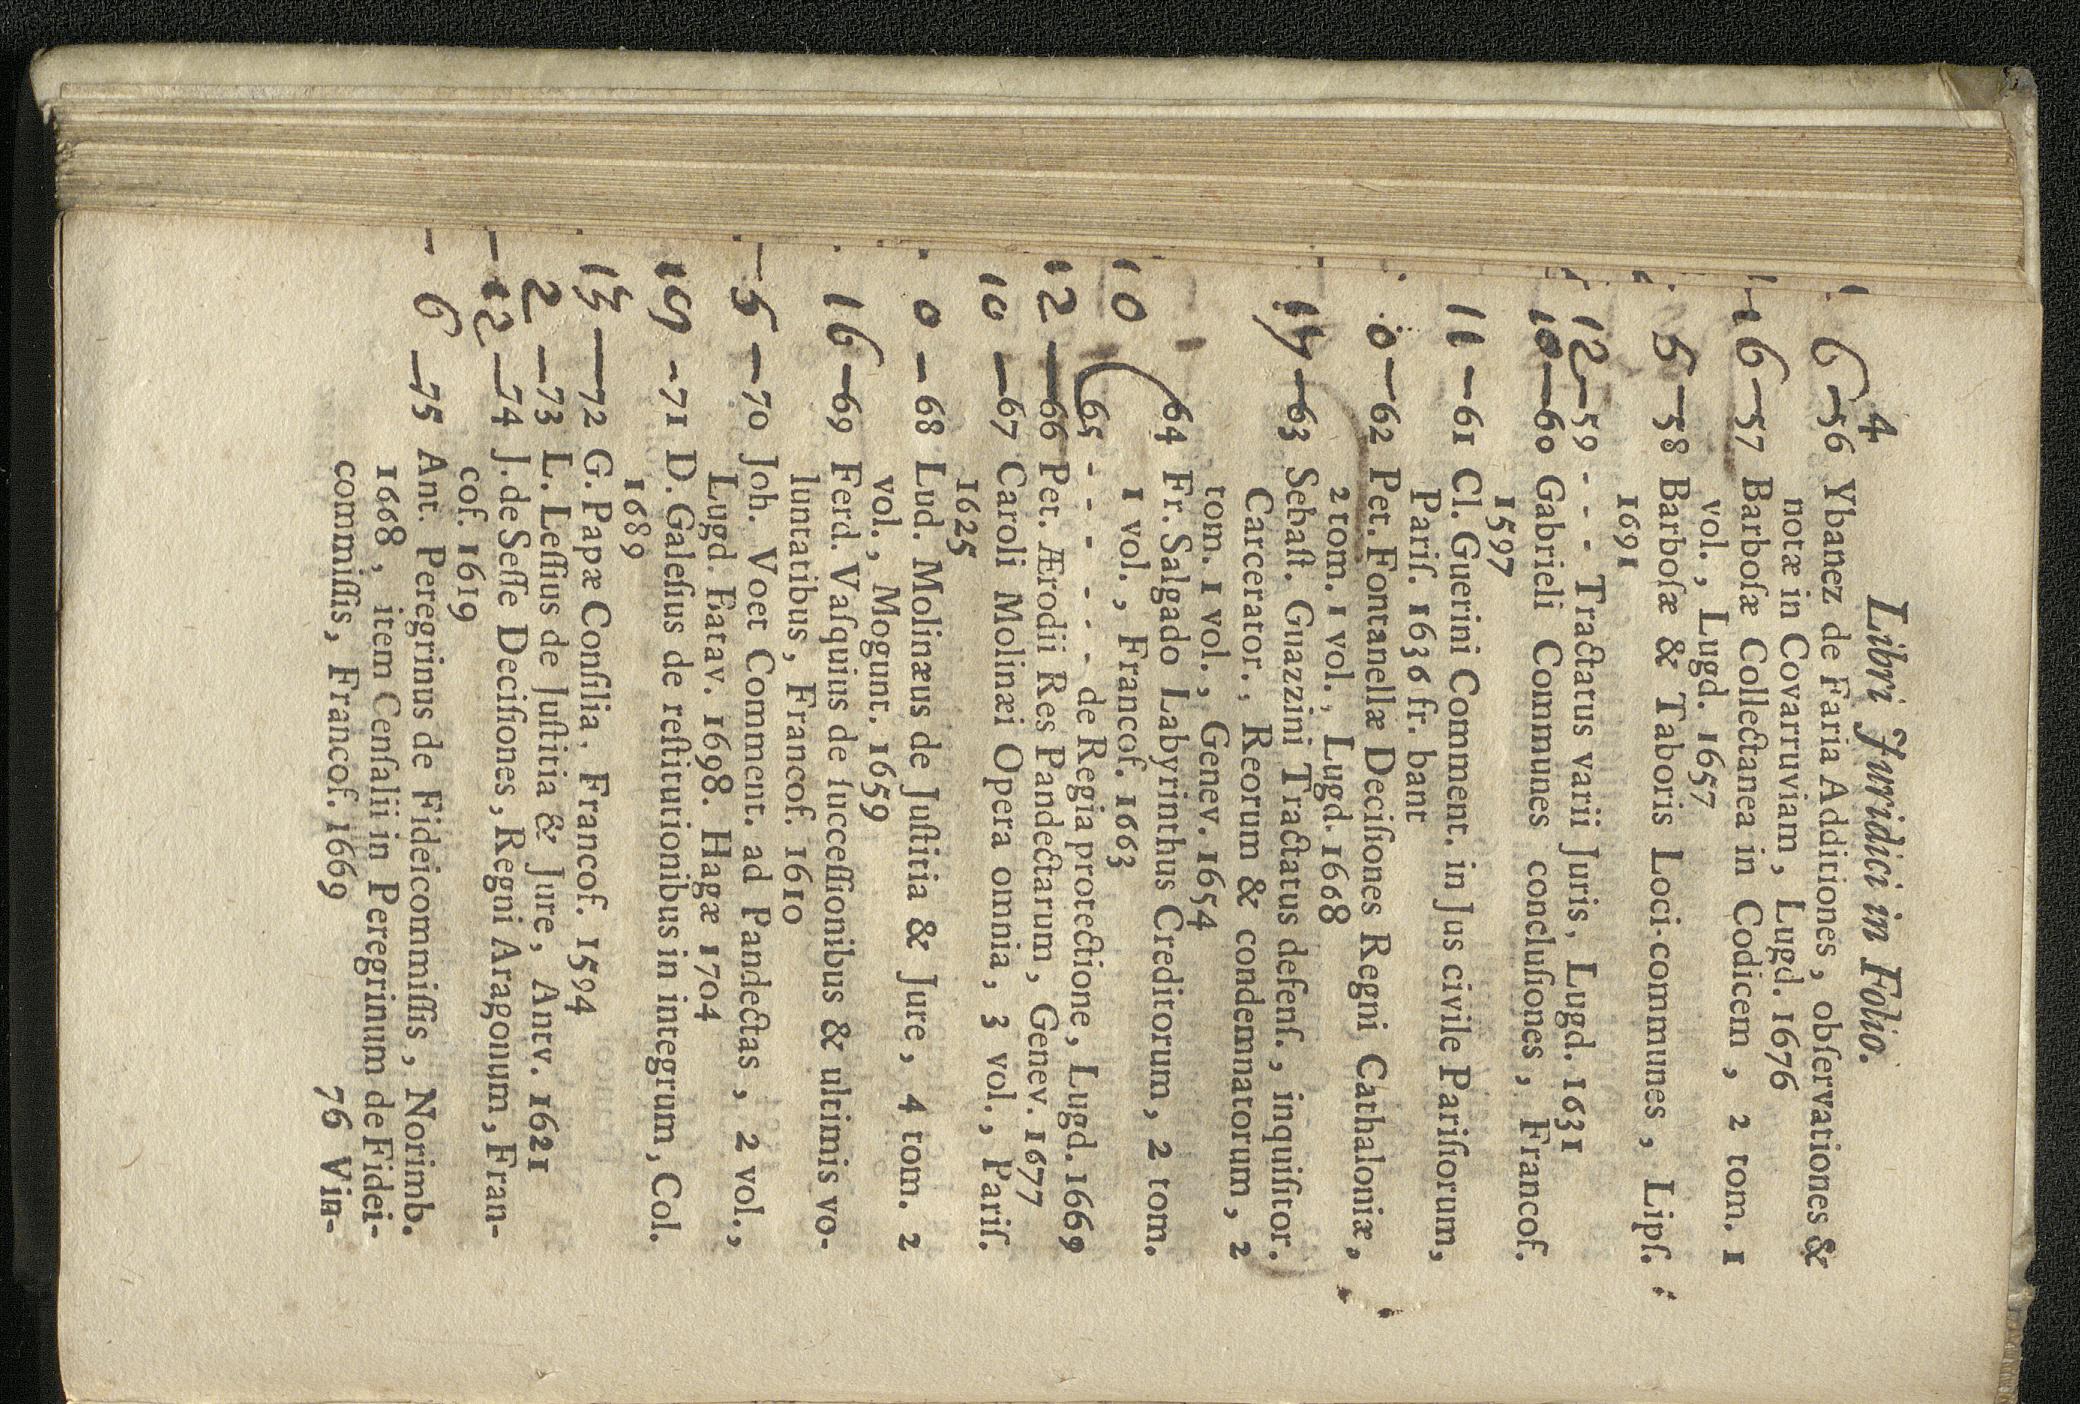 4 Libri Juridici in Folio.
6 — 56 Ybanez de Faria Additiones, obſervationes &
notæ in Covarruviam, Lugd. 1676
16 — 57 Barboſæ Collectanea in Codicem, 2 tom. 1
vol., Lugd. 1657
6 — 58 Barboſæ & Taboris Loci-communes, Lipſ.
1691
12 — 59 - - - Tractatus varii Juris, Lugd. 1631
10 — 60 Gabrieli Communes concluſiones, Francof.
1597
11 — 61 Cl. Guerini Comment. in Jus civile Pariſiorum,
Pariſ. 1636 fr. bant
0 — 62 Pet. Fontanellæ Deciſiones Regni Cathaloniæ,
2 tom. 1 vol., Lugd. 1668
— 63 Sebaſt. Guazzini Tractatus defenſ., inquiſitor.
Carcerator., Reorum & condemnatorum, 2
tom. 1 vol., Genev. 1654
10 64 Fr. Salgado Labyrinthus Creditorum, 2 tom.
1 vol., Francof. 1663
65 - - - - - de Regia protectione, Lugd. 1669
12 — 66 Pet. Ærodii Res Pandectarum, Genev. 1677
10 — 67 Caroli Molinæi Opera omnia, 3 vol., Pariſ.
1625
0 — 68 Lud. Molinæus de Juſtitia & Jure, 4 tom. 2
vol., Mogunt. 1659
16 — 69 Ferd. Vaſquius de ſucceſſionibus & ultimis vo-
luntatibus, Francof. 1610
5 — 70 Joh. Voet Comment. ad Pandectas, 2 vol.,
Lugd. Batav. 1698. Hagæ 1704
19 - 71 D. Galeſius de reſtitutionibus in integrum, Col.
1689
— 72 G. Papæ Conſilia, Francof. 1594
2 — 73 L. Leſſius de Juſtitia & Jure, Antv. 1621
12 — 74 J. de Seſſe Deciſiones, Regni Aragonum, Fran-
cof. 1619
6 — 75 Ant. Peregrinus de Fideicommiſſis, Norimb.
1668, item Cenſalii in Peregrinum de Fidei-
commiſſis, Francof. 1669
76 Vin-